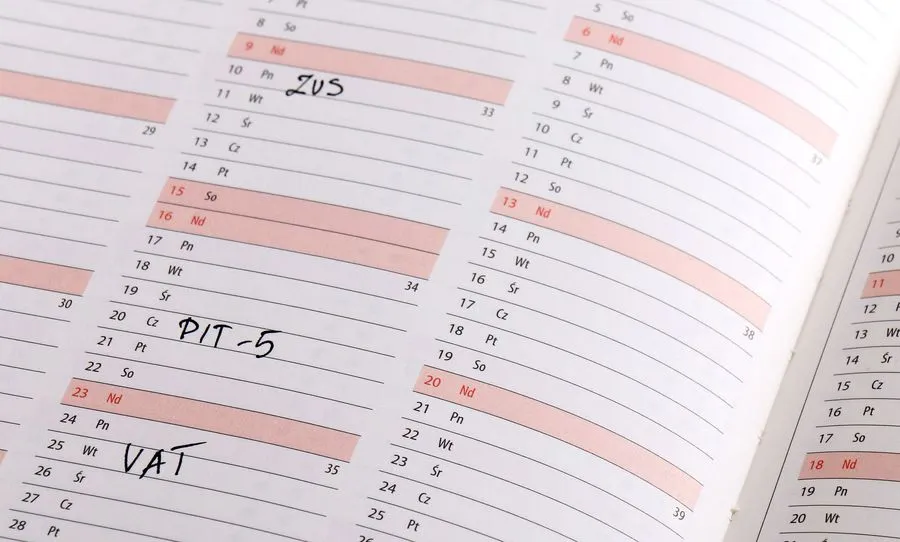 29
30
7 Pt
8 So
9 Nd
10 Pn ZUS
33
11 Wt
12 Śr
13 Cz
14 Pt
15 So
16 Nd
34
17 Pn
18 Wt
19 Śr
20 Cz PIT-5
21 Pt
22 So
23 Nd
35
24 Pn
25 Wt VAT
26 Śr
27 Cz
28 Pt
5 So
6 Nd
37
7 Pn
8 Wt
9 Śr
10 Cz
11 Pt
12 So
13 Nd
38
14 Pn
15 Wt
16 Śr
17 Cz
18 Pt
19 So
20 Nd
39
21 Pn
22 Wt
23 Śr
24 Cz
25 Pt
9
10
11
12
13 Wt
14 Śr
15 Cz
16 Pt
17 So
18 Nd
19 Pn
20 Wt